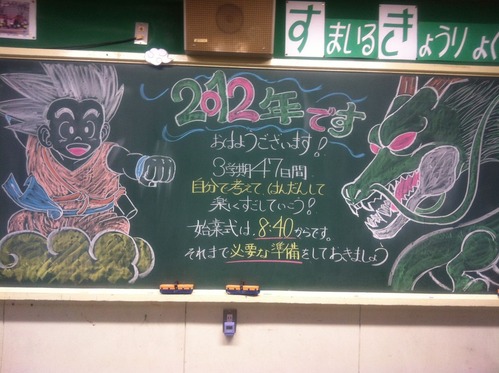 すまいるきょうりょく
2012年です
おはようございます!
3学期47日間
自分で考えて、はんだんして
楽しくすごしていこう!
始業式は、8:40からです。
それまで必要な準備をしておきましょう